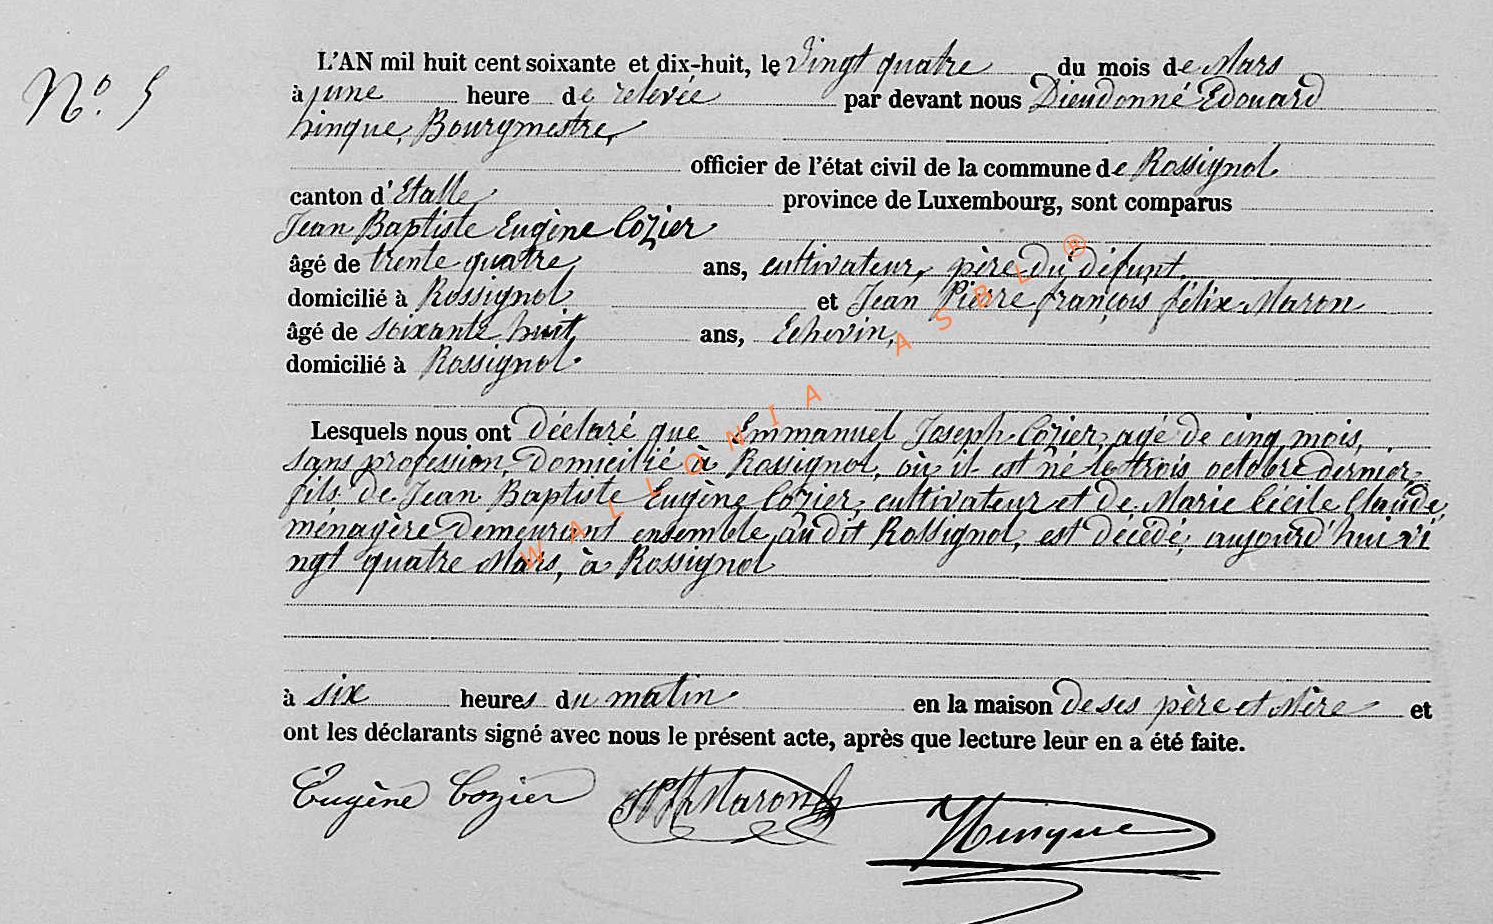 N° 5
L'AN mil huit cent soixante et dix-huit, le Vingt quatre du mois de Mars
à une heure de relevée par devant nous Dieudonné Edouard
hinque, Bourgmestre,
officier de l'état civil de la commune de Rossignol
canton d'Etalle province de Luxembourg, sont comparus
Jean Baptiste Eugène Cozier
âgé de trente quatre ans, cultivateur, père du défunt
domicilié à Rossignol et Jean Pierre françois félix Maron
âgé de soixante huit ans, Echevin,
domicilié à Rossignol.
Lesquels nous ont déclaré que Emmanuel Joseph Cozier, agé de cinq mois,
sans profession, domicilié à Rossignol, où il est né le trois octobre dernier,
fils de Jean Baptiste Eugène Cozier, cultivateur et de Marie Cécile Claude,
ménagère demeurant ensemble audit Rossignol, est décédé, aujourd'hui vi
ngt quatre Mars, à Rossignol
à six heures du matin. en la maison de ses père et Mère et
ont les déclarants signé avec nous le présent acte, après que lecture leur en a été faite.
Eugène Cozier Maron Hinque
WALLONIA ASBL ©